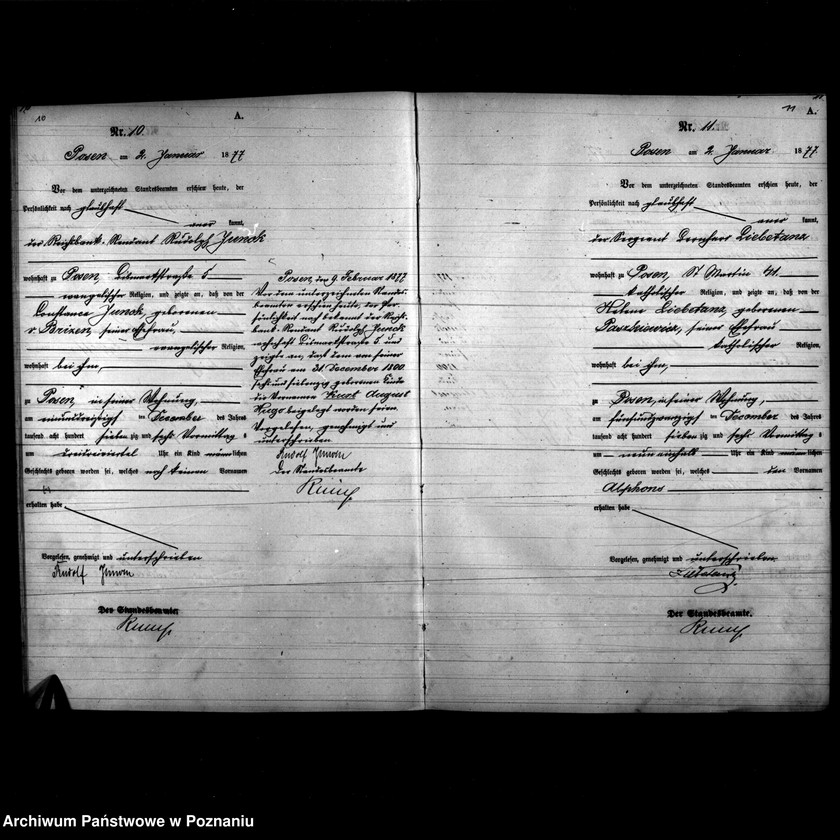 10
A.
Nr. 10.
Posen am 2. Januar 1877
Vor dem unterzeichneten Standesbeamten erschien heute, der
Persönlichkeit nach glaubhaft
kannt,
der Reichsbank-Rendant Rudolph Junck
wohnhaft zu Posen, Bismarkstraße 5
evangelischer Religion, und zeigte an, daß von der
Constance Junck, geborenen
v. Brizen, seiner Ehefrau,
evangelischer Religion,
wohnhaft bei ihm,
zu Posen, in seiner Wohnung,
am einunddreißigsten December des Jahres
tausend acht hundert sieben zig und sechs Vormittag s
um dreiviertel Uhr ein Kind männlichen
Geschlechts geboren worden sei, welches noch keinen Vornamen
erhalten habe
Vorgelesen, genehmigt und unterschrieben
Rudolf
Der Standesbeamte
Posen, den 9. Februar 1877
Vor dem unterzeichneten Standes-
beamten erschien heute, der Per-
sönlichkeit nach bekannt der Reichs-
bank-Rendant Rudolph Junck
wohnhaft Bismarkstraße 5 und
zeigte an, daß dem von seiner
Ehefrau am 31. December 1800.
sechs und siebenzig geborenen Kinde
die Vornamen Kurt August
Hugo beigelegt worden seien.
Vorgelesen, genehmigt und
unterschrieben
Rudolf
Der Standesbeamte
11
A.
Nr. 11.
Posen am 2. Januar 1877.
Vor dem unterzeichneten Standesbeamten erschien heute, der
Persönlichkeit nach glaubhaft
kannt,
der Sergeant Bernhard Liebetanz
wohnhaft zu Posen, St Martin 41.
katholischer Religion, und zeigte an, daß von der
Helene Liebetanz, geborenen
Paszkiewicz, seiner Ehefrau
katholischer Religion,
wohnhaft bei ihm,
zu Posen, in seiner Wohnung,
am fünfundzwanzigsten December des Jahres
tausend acht hundert sieben zig und sechs Vormittag s
um neuneinhalb Uhr ein Kind männlichen
Geschlechts geboren worden sei, welches den Vornamen
Alphons
erhalten habe
Vorgelesen, genehmigt und unterschrieben
Der Standesbeamte.
Archiwum Państwowe w Poznaniu